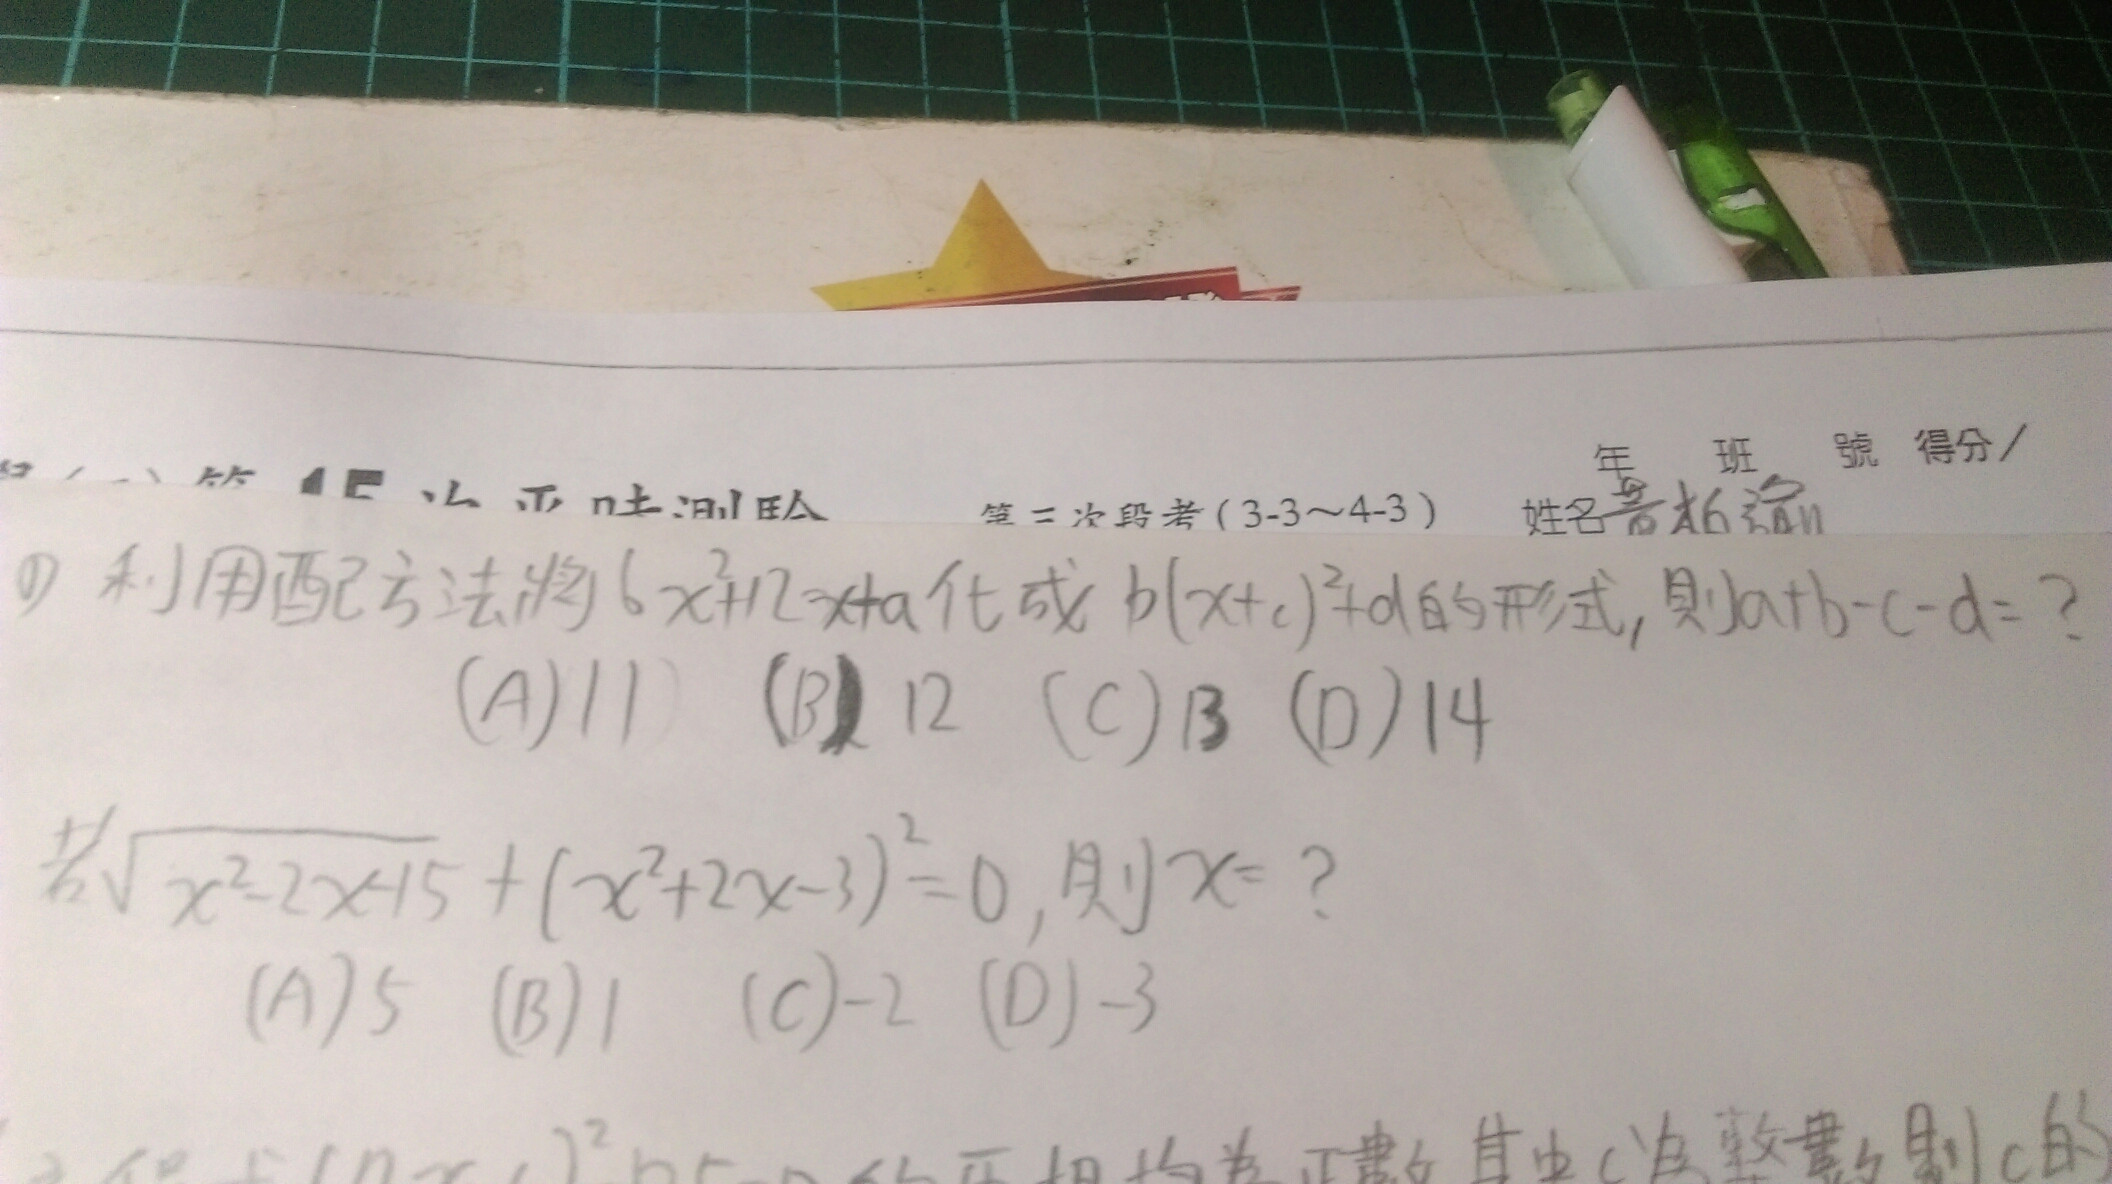 年 班 號 得分/
第 15 次平時測驗 第三次段考(3-3～4-3) 姓名
利用配方法將6x²+12x+a化成b(x+c)²+d的形式,則a+b-c-d=?
(A)11 (B)12 (C)13 (D)14
若√x²-2x-15+(x²+2x-3)²=0,則x=?
(A)5 (B)1 (C)-2 (D)-3
均為正數,其中c為整數,則c的